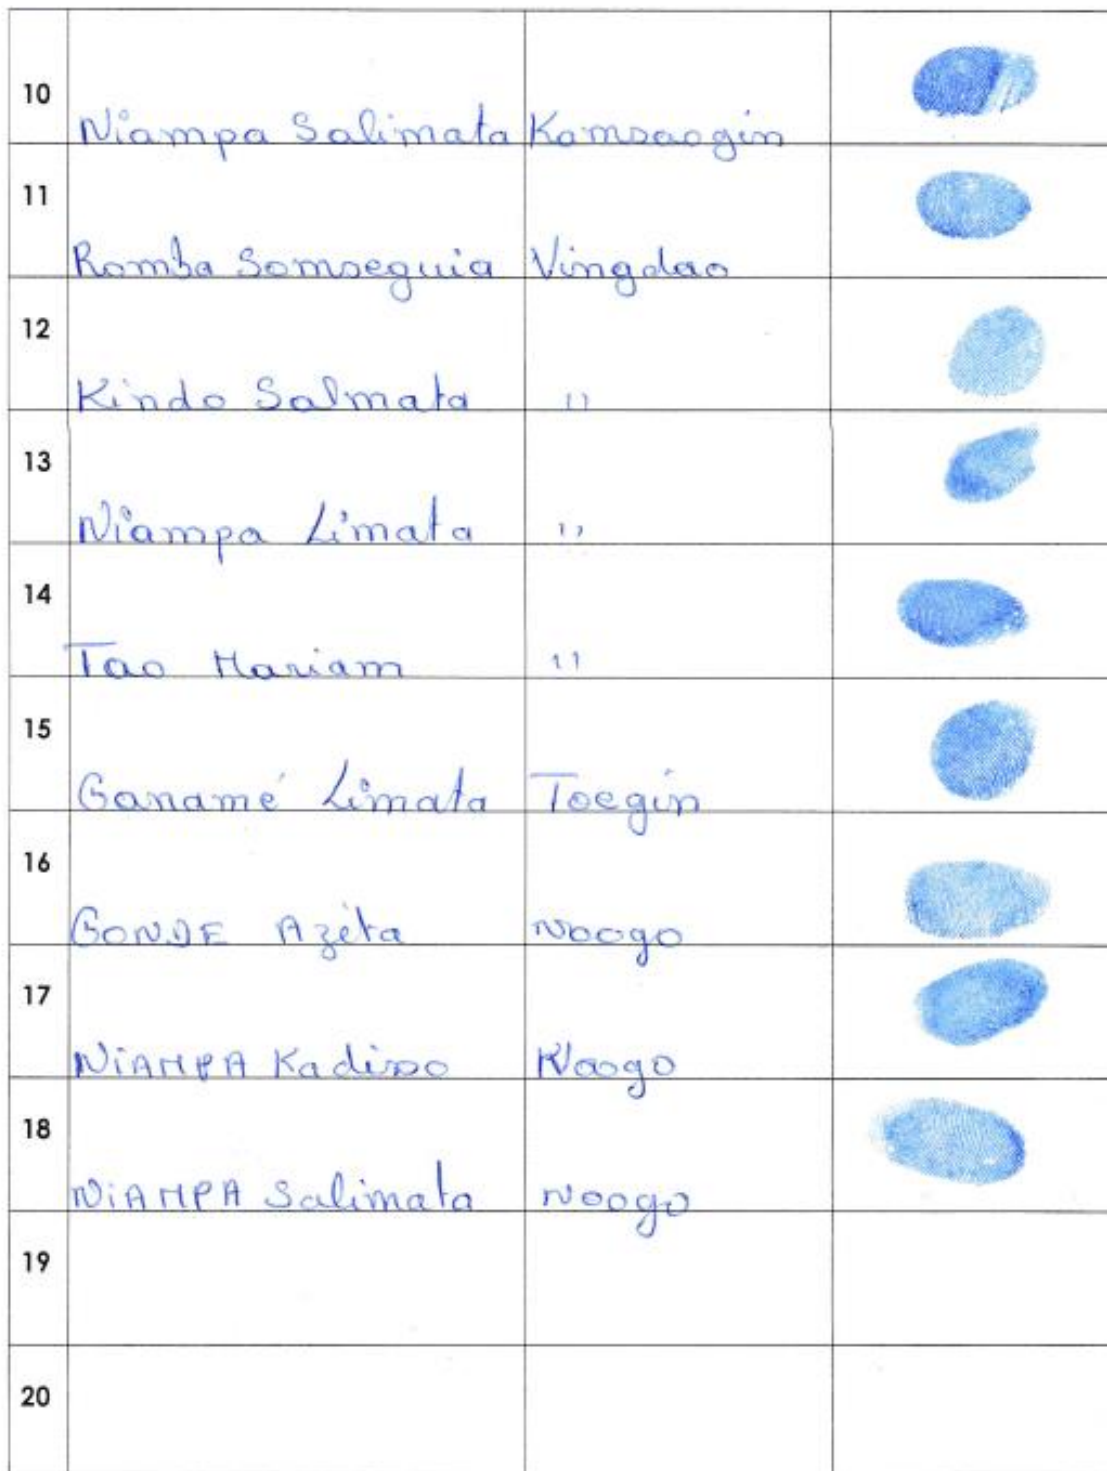 10 Niampa Salimata Kamsaogin
11 Romba Somseguia Vingdao
12 Kindo Salmata "
13 Niampa Limata "
14 Tao Mariam "
15 Ganamé Limata Toegin
16 GONDE Azèta Noogo
17 NiAMPA Kadisso Noogo
18 NiAMPA Salimata Noogo
19
20